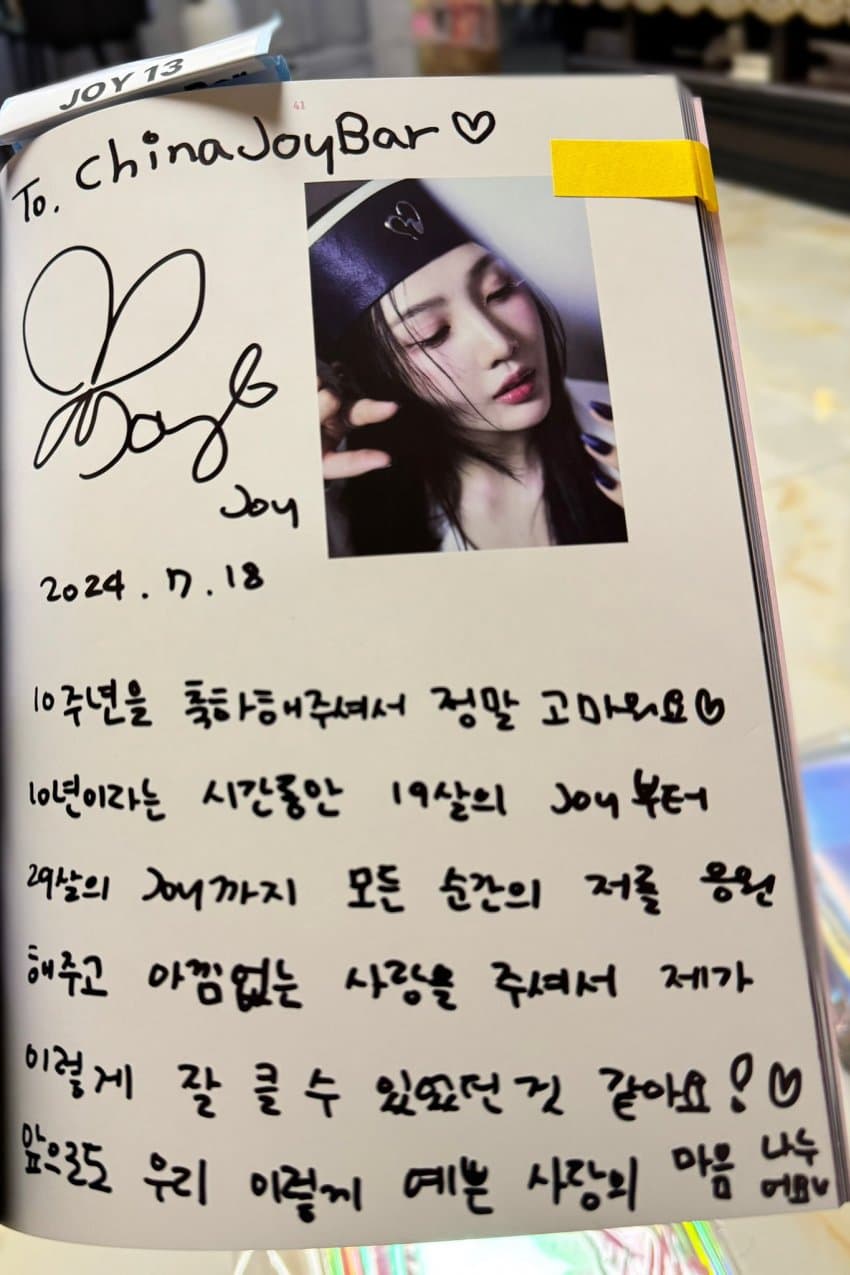 JOY 13
41
To. chinaJoyBar♡
Joy
Joy
2024.7.18
10주년을 축하해주셔서 정말 고마워요♡
10년이라는 시간동안 19살의 Joy부터
29살의 Joy까지 모든 순간의 저를 응원
해주고 아낌없는 사랑을 주셔서 제가
이렇게 잘 클 수 있었던것 같아요!♡
앞으로도 우리 이렇게 예쁜 사랑의 마음 나누
어요♡